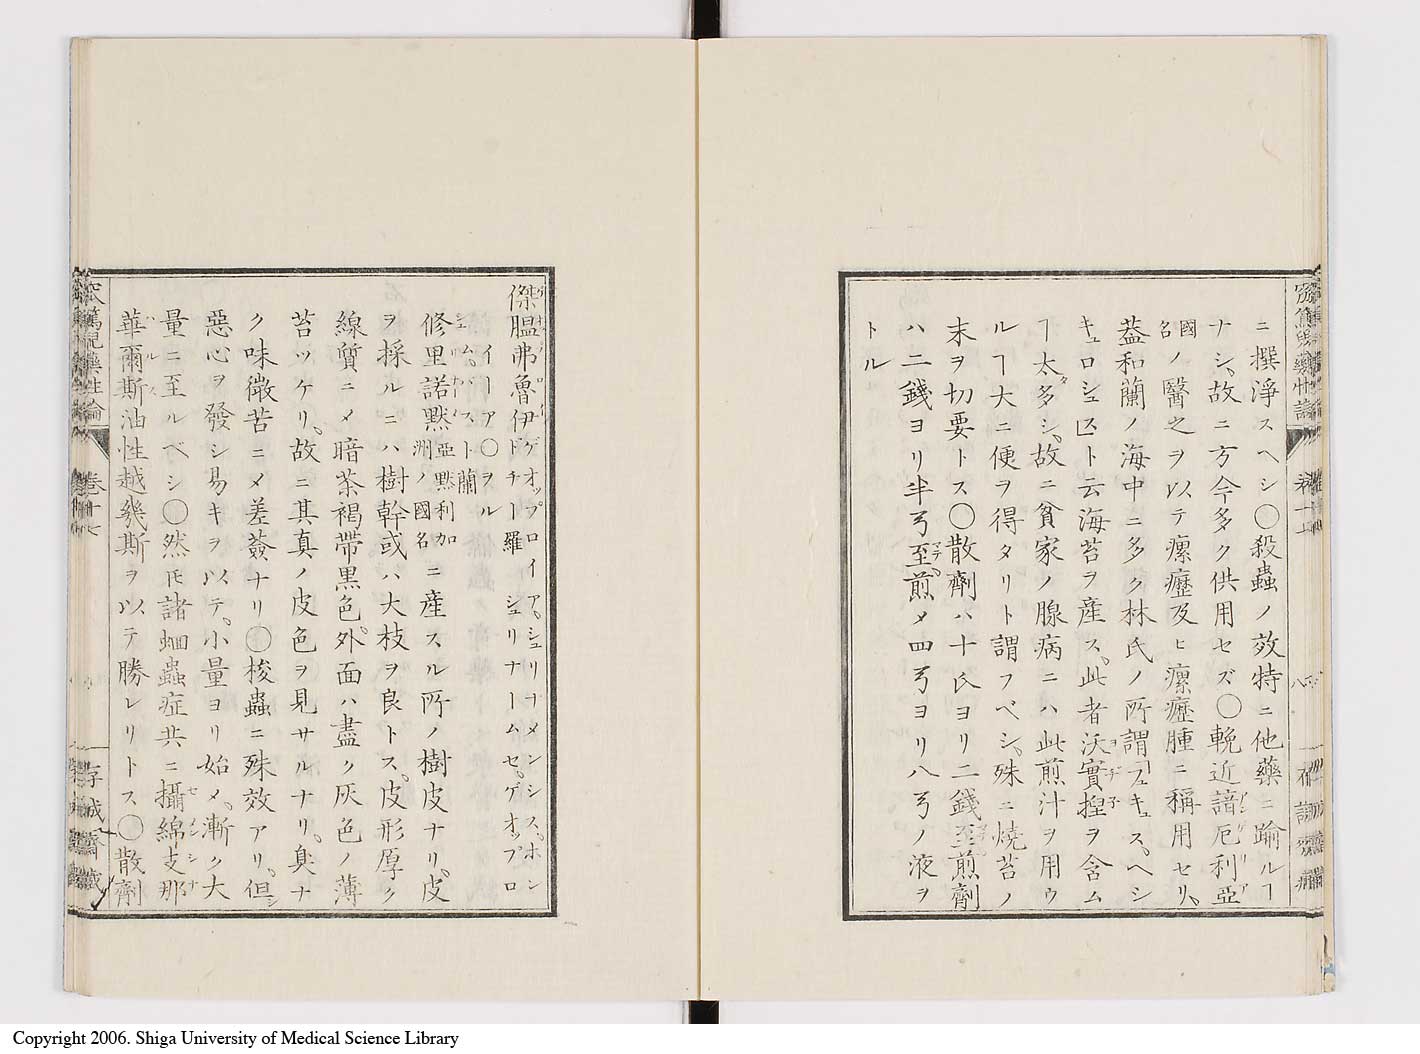 ニ撰淨スヘシ〇殺蟲ノ效特ニ他藥ニ踰ルヿ
ナシ、故ニ方今多ク供用セズ〇輓近諳厄利亞
國名ノ醫之ヲ以テ瘰癧及ヒ瘰癧腫ニ稱用セリ、
蓋和蘭ノ海中ニ多ク林氏ノ所謂フュキュス、ヘシ
キュロシュスト云海苔ヲ産ス、此者沃實揑ヲ含ム
ヿ太多シ、故ニ貧家ノ腺病ニハ此煎汁ヲ用ウ
ルヿ大ニ便ヲ得タリト謂フベシ、殊ニ燒苔ノ
末ヲ切要トス〇散劑ハ十氏ヨリ二錢至煎劑
ハ二錢ヨリ半弓至煎メ四弓ヨリ八弓ノ液ヲ
トル
傑膃弗魯伊ドチー羅 ゲオップロイア、シュリナメンシス、ホン
シュリナームセ、ゲオップロ
イーア〇ヲル
ム、バスト蘭
修里諾黙亞黙利加洲ノ國名ニ産スル所ノ樹皮ナリ、皮
ヲ採ルニハ樹幹或ハ大枝ヲ良トス、皮形厚ク
線質ニメ暗茶褐帶黑色、外面ハ盡ク灰色ノ薄
苔ツケリ、故ニ其真ノ皮色ヲ見サルナリ、臭ナ
ク味微苦ニメ差薟ナリ〇梭蟲ニ殊效アリ、但シ
惡心ヲ發シ易キヲ以テ、小量ヨリ始メ、漸ク大
量ニ至ルベシ〇然𪜈諸蛔蟲症共ニ攝綿支那
華爾斯油性越幾斯ヲ以テ勝レリトス〇散劑
窊篤兒藥性論
卷十七
存誠齋藏